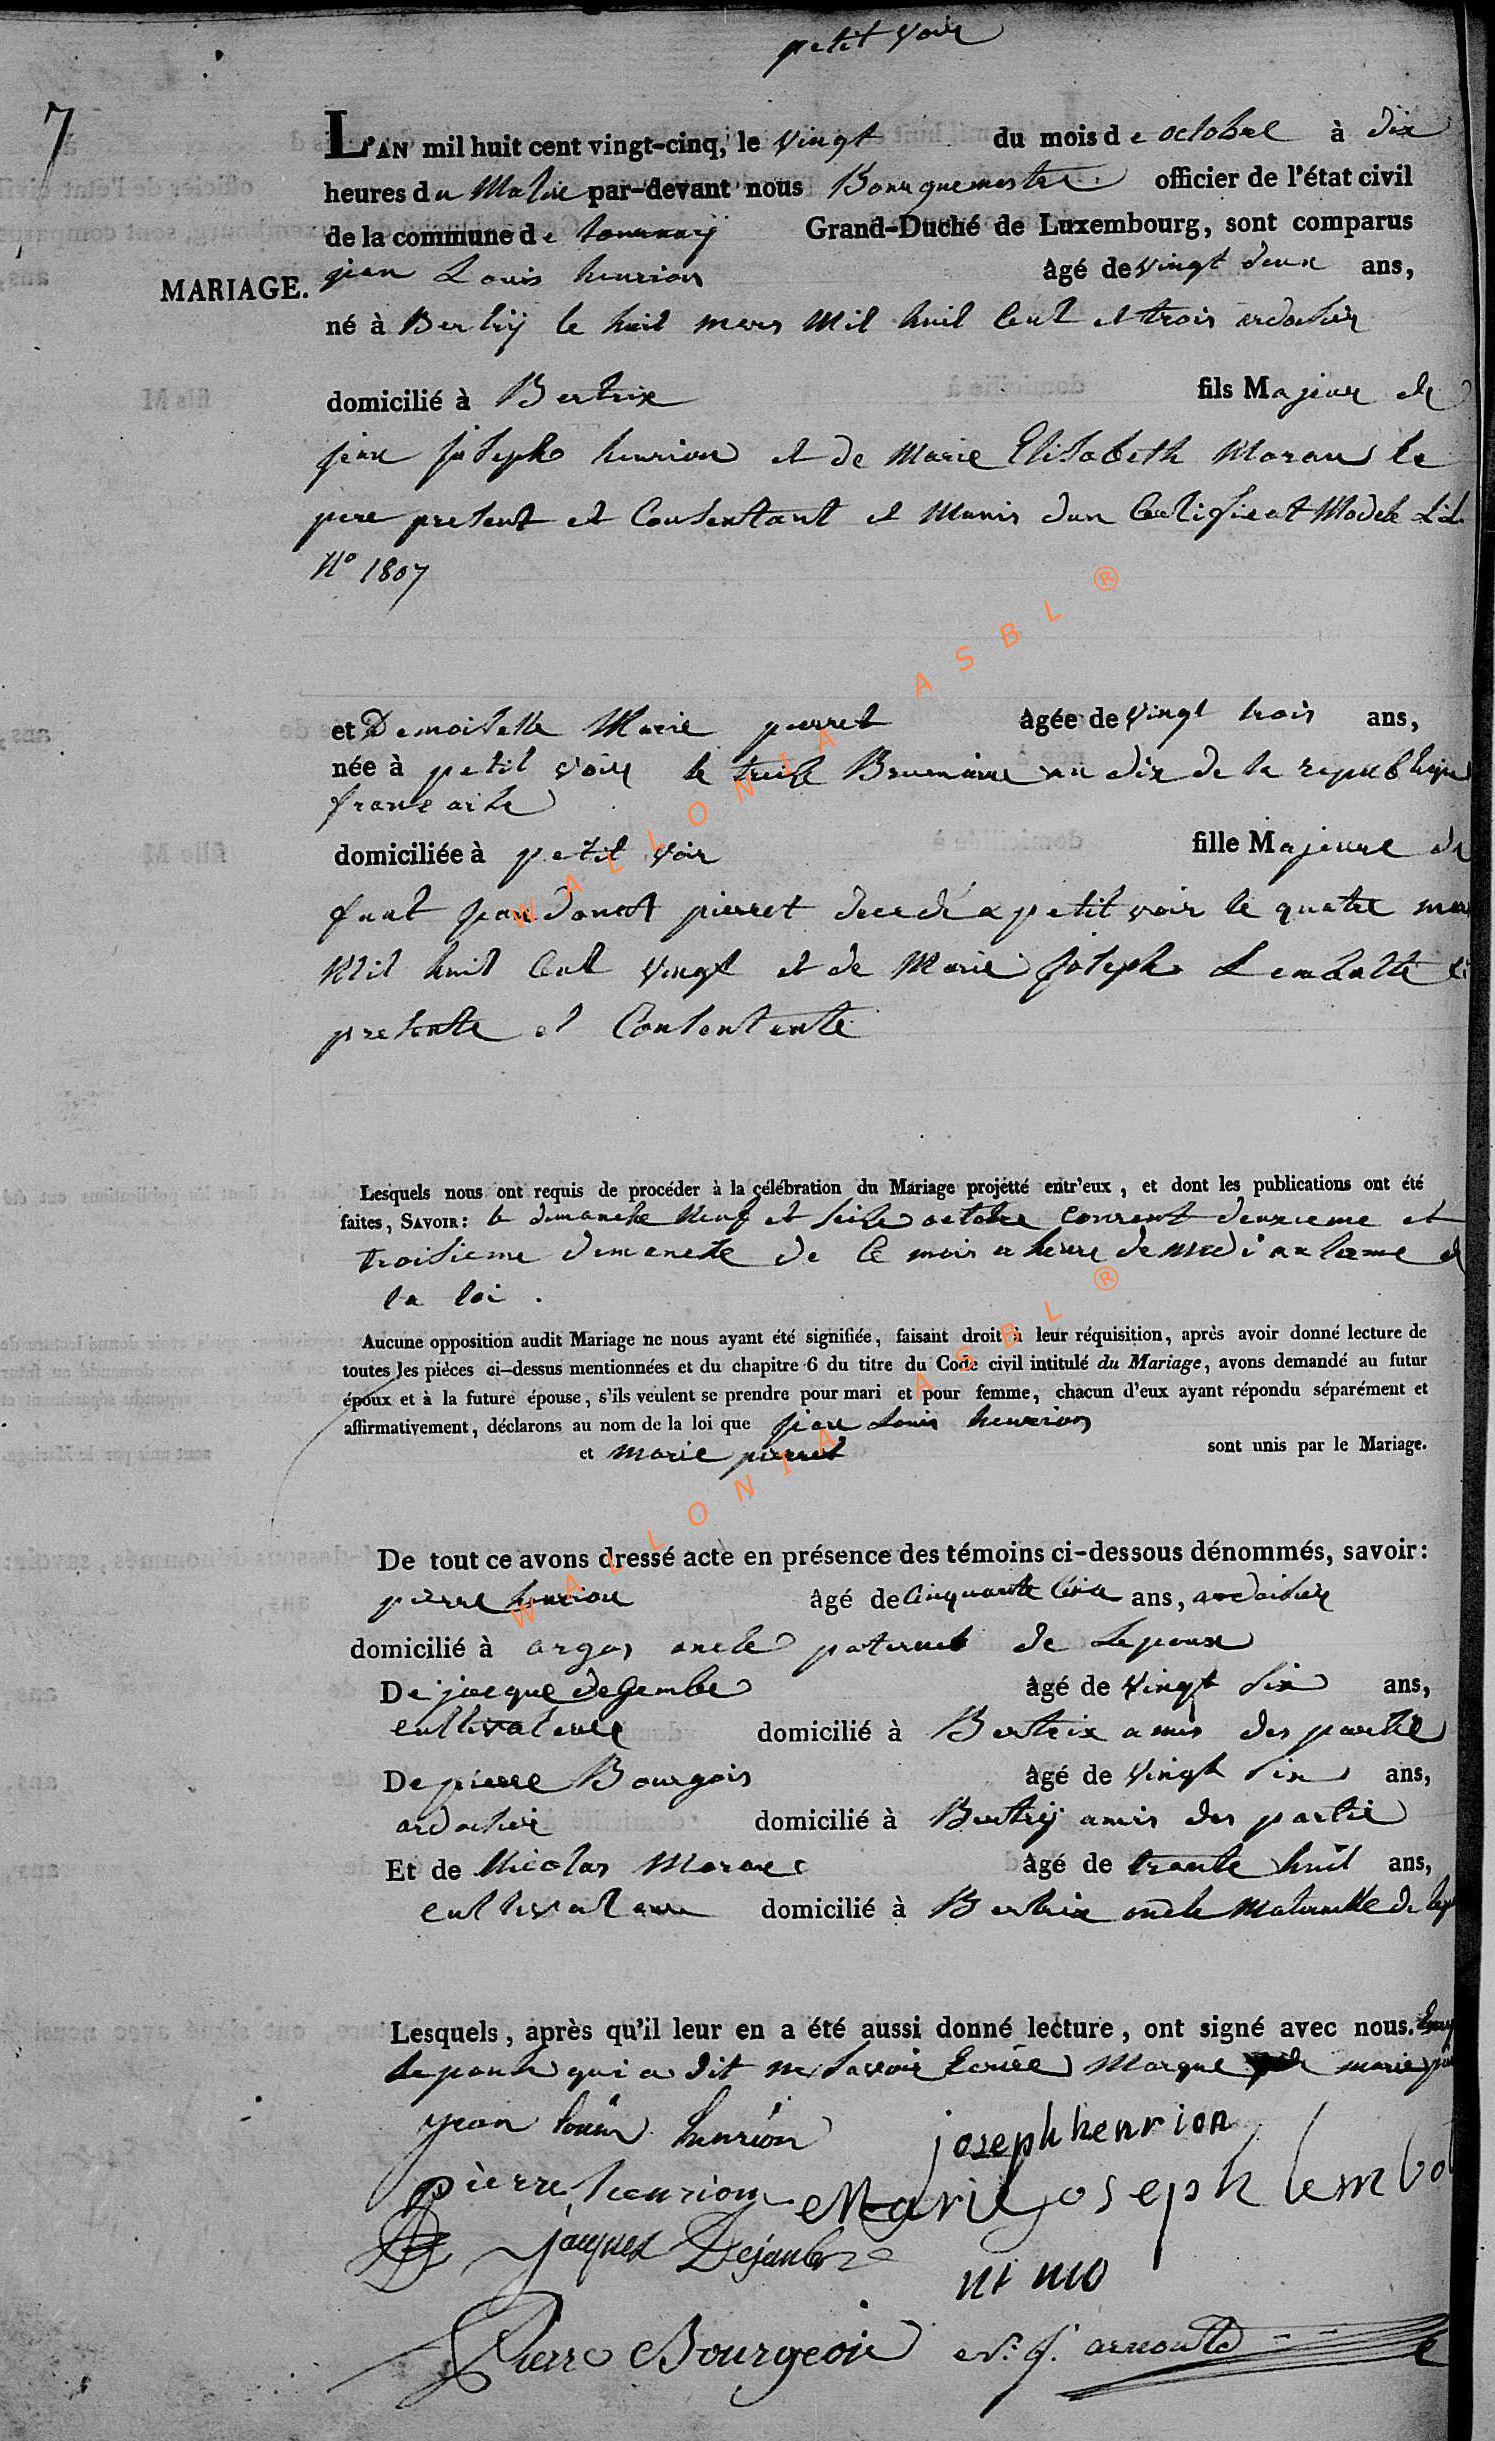 petit voir
7
L'AN mil huit cent vingt-cinq, le vingt du mois de octobre à dix
heures du Matin par-devant nous Bourguemestre officier de l'état civil
de la commune de tournaÿ Grand-Duché de Luxembourg, sont comparus
MARIAGE.
jean Louis henrion âgé de vingt deux ans,
né à Bertrÿ le huit mars Mil huit Cent et trois ardoisier
domicilié à Bertrix fils Majeur de
jean joseph henrion et de Marie Elisabeth Maran le
pere present et Consentant et Munis dun Certificat Modele
N° 1807
et Demoiselle Marie pierret âgée de vingt trois ans,
née à petit voir le treize Brumaire an dix de la republique
francaise
domiciliée à petit voir fille Majeure de
feut jean donat pierret decedé a petit voir le quatre
Mil huit Cent vingt et de Marie joseph Lembotte
presente et Consentente
Lesquels nous ont requis de procéder à la célébration du Mariage projetté entr'eux, et dont les publications ont été
faites, SAVOIR: le dimanche Neuf et seize octobre courant deuxieme et
troisieme dimenche de Ce mois a heure de midi au terme de
la loi.
Aucune opposition audit Mariage ne nous ayant été signifiée, faisant droit à leur réquisition, après avoir donné lecture de
toutes les pièces ci-dessus mentionnées et du chapitre 6 du titre du Code civil intitulé du Mariage, avons demandé au futur
époux et à la future épouse, s'ils veulent se prendre pour mari et pour femme, chacun d'eux ayant répondu séparément et
affirmativement, déclarons au nom de la loi que jean Louis henrion
et marie pierret sont unis par le Mariage.
De tout ce avons dressé acte en présence des témoins ci-dessous dénommés, savoir:
pierre henrion âgé de Cinquante Cinq ans, ardoisier
domicilié à orgeo oncle paternel de Lepoux
De jacque deGembe âgé de vingt six ans,
cultivateur domicilié à Bertrix amis des partie
De pierre Bourgois âgé de vingt six ans,
ardoisier domicilié à Bertrÿ amis des partie
Et de Nicolas Maran âgé de trante huit ans,
cultivateur domicilié à Bertrix oncle Maternelle de
Lesquels, après qu'il leur en a été aussi donné lecture, ont signé avec nous.
Lepouse qui a dit ne savoir Ecrire Marque marie
jean louis henrion
joseph henrion
pierre henrion
Marie joseph lembo
jacques Dejambe
Pierre Bourgeois
N. J. arnould
WALLONIA ASBL ®
WALLONIA ASBL ®